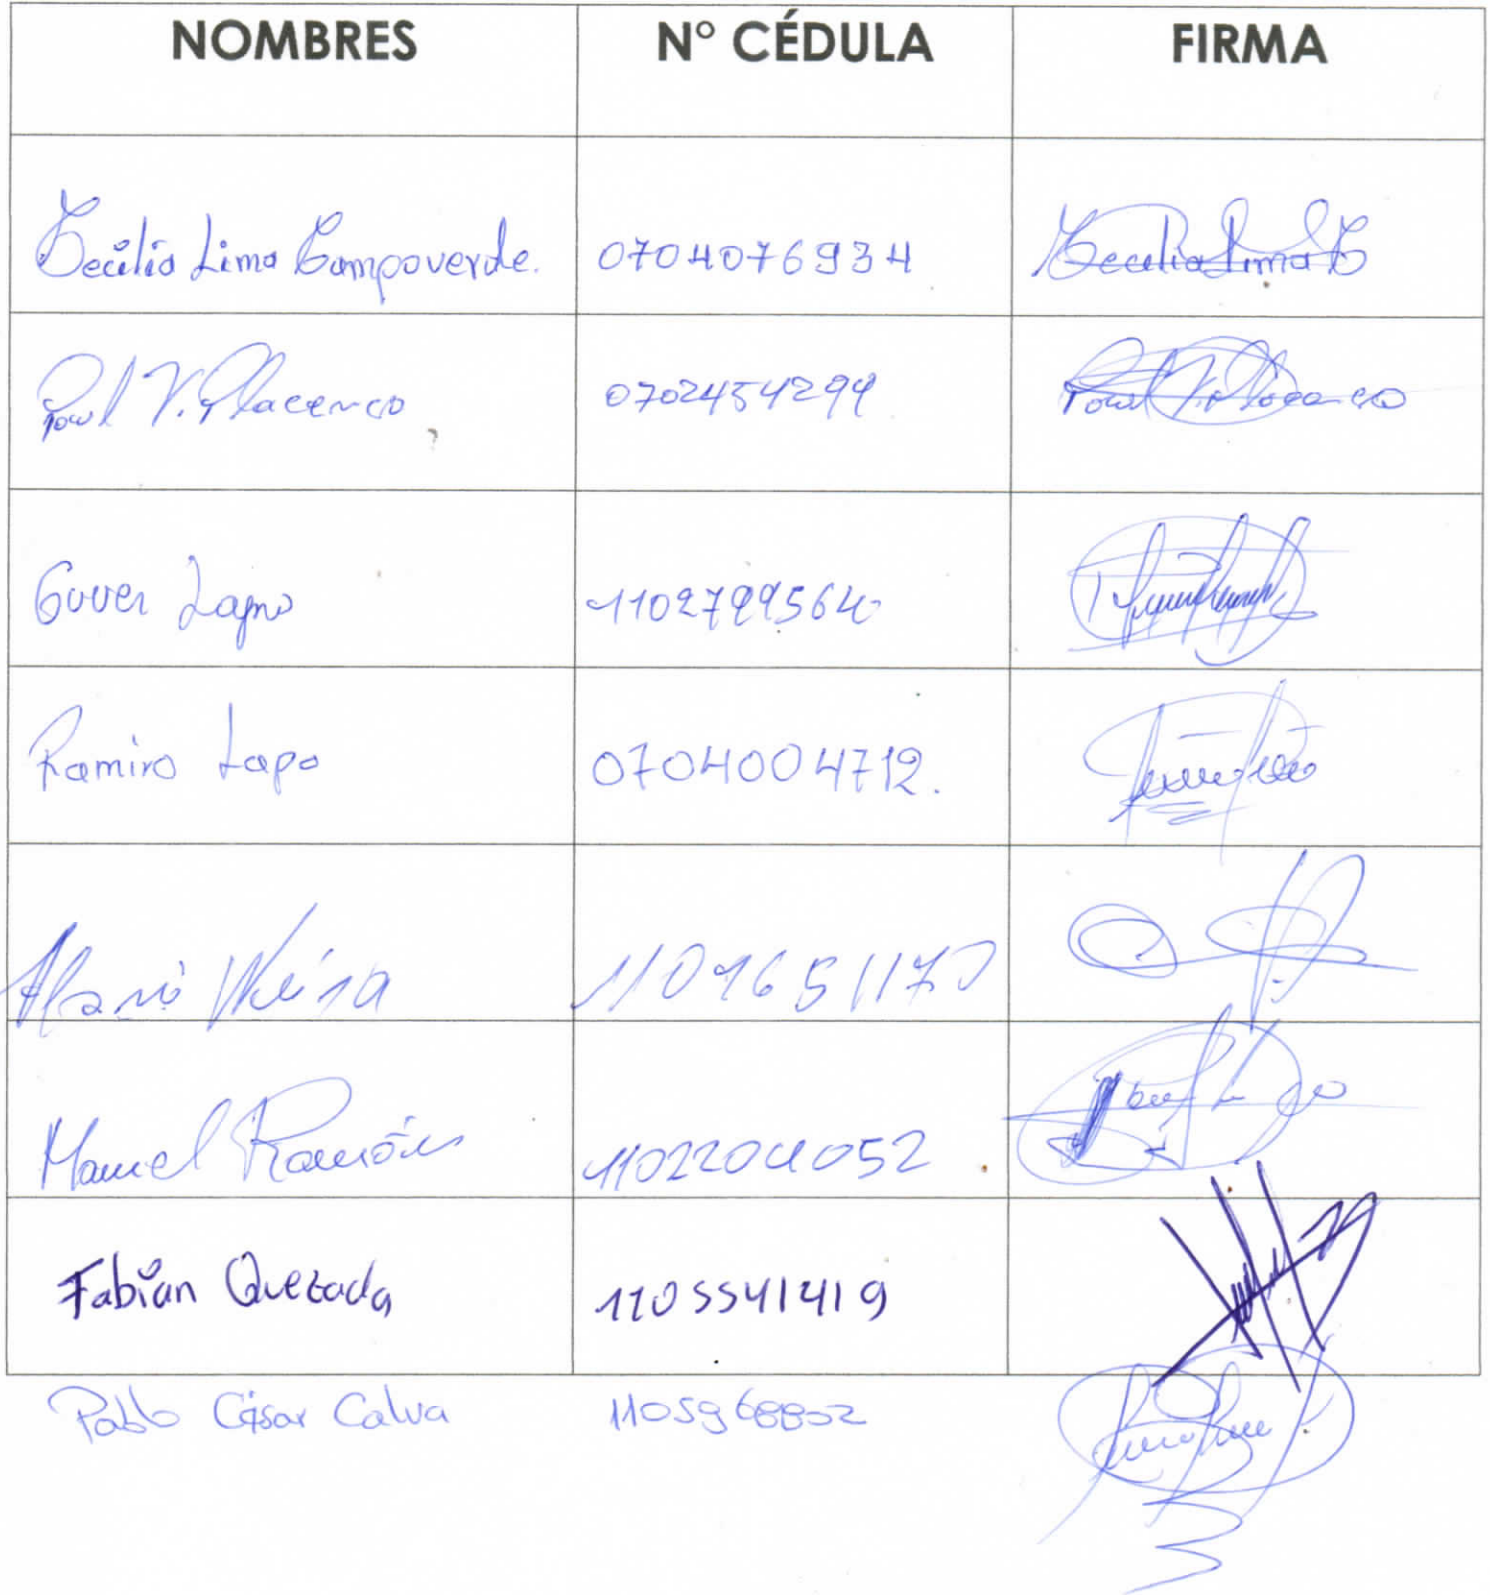 NOMBRES N° CÉDULA FIRMA
Cecilia Lima Campoverde. 0704076934 Cecilia Lima C
Paul V. Placencio 0702454294 Paul V. Placencio
Guver Lapo 1102799564
Ramiro Lapo 0704004712.
Neira
Manuel Ramón 1102204052
Fabian Quezada 1105541419
Pablo César Calva 1105968802